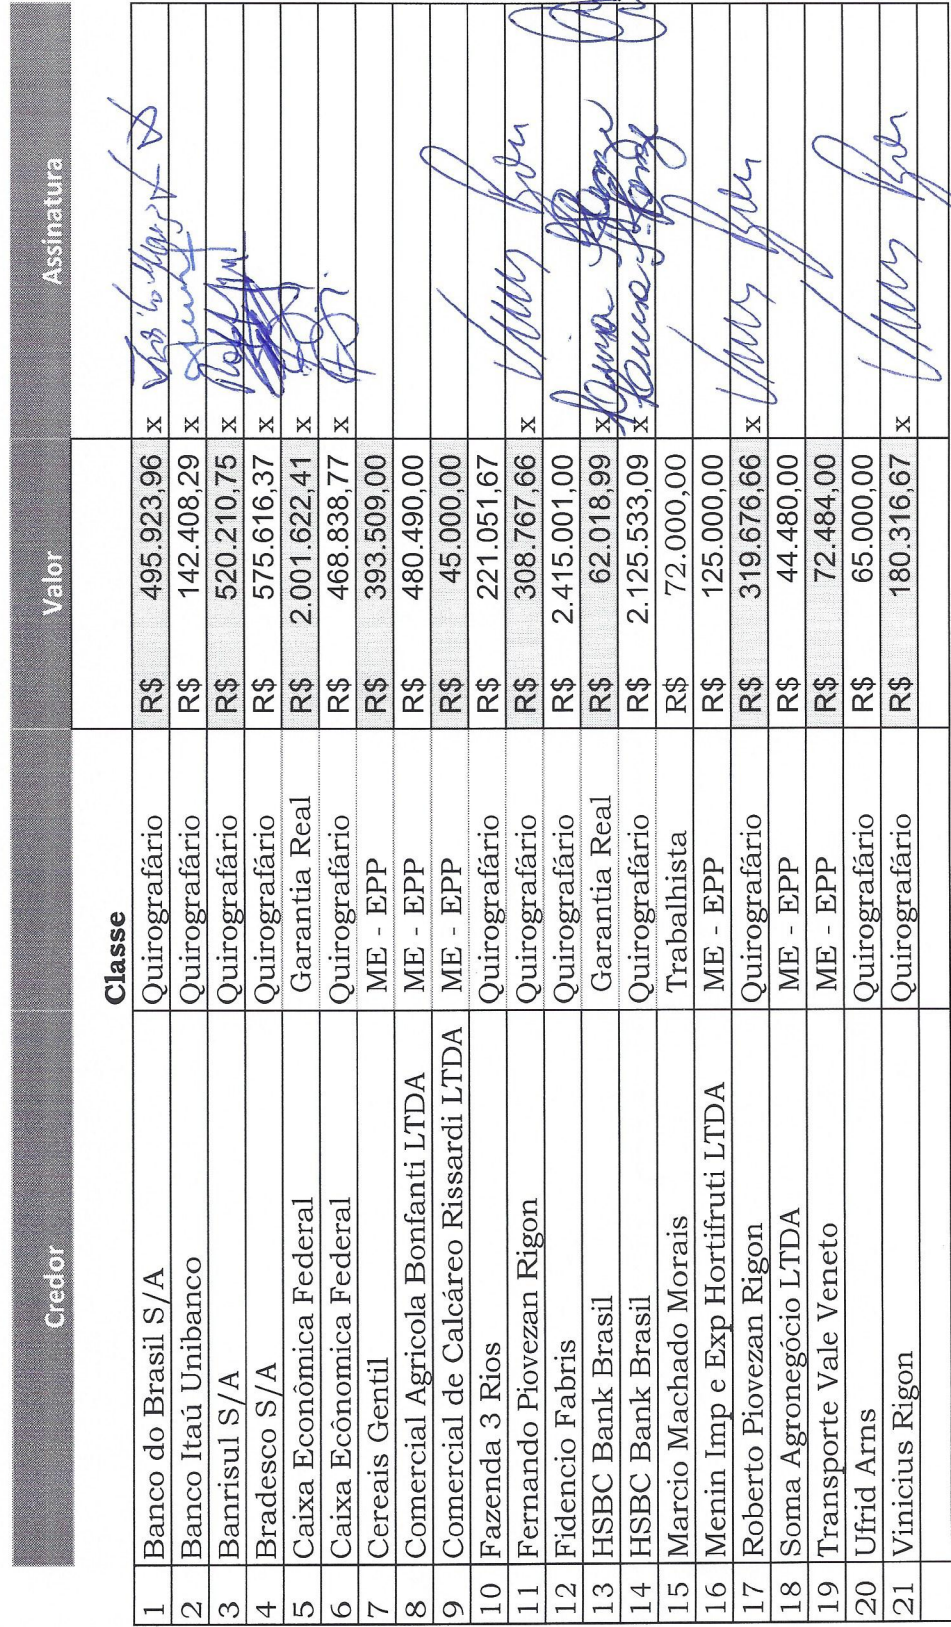 Credor Valor Assinatura
Classe
1 Banco do Brasil S/A Quirografário R$ 495.923,96 x
2 Banco Itaú Unibanco Quirografário R$ 142.408,29 x
3 Banrisul S/A Quirografário R$ 520.210,75 x
4 Bradesco S/A Quirografário R$ 575.616,37 x
5 Caixa Econômica Federal Garantia Real R$ 2.001.622,41 x
6 Caixa Ecônomica Federal Quirografário R$ 468.838,77 x
7 Cereais Gentil ME - EPP R$ 393.509,00
8 Comercial Agricola Bonfanti LTDA ME - EPP R$ 480.490,00
9 Comercial de Calcáreo Rissardi LTDA ME - EPP R$ 45.000,00
10 Fazenda 3 Rios Quirografário R$ 221.051,67
11 Fernando Piovezan Rigon Quirografário R$ 308.767,66 x
12 Fidencio Fabris Quirografário R$ 2.415.001,00
13 HSBC Bank Brasil Garantia Real R$ 62.018,99 x
14 HSBC Bank Brasil Quirografário R$ 2.125.533,09 x
15 Marcio Machado Morais Trabalhista R$ 72.000,00
16 Menin Imp e Exp Hortifruti LTDA ME - EPP R$ 125.000,00
17 Roberto Piovezan Rigon Quirografário R$ 319.676,66 x
18 Soma Agronegócio LTDA ME - EPP R$ 44.480,00
19 Transporte Vale Veneto ME - EPP R$ 72.484,00
20 Ufrid Arns Quirografário R$ 65.000,00
21 Vinicius Rigon Quirografário R$ 180.316,67 x